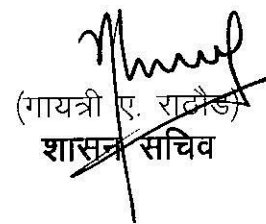 (गायत्री ए. राठौड़)
शासन सचिव